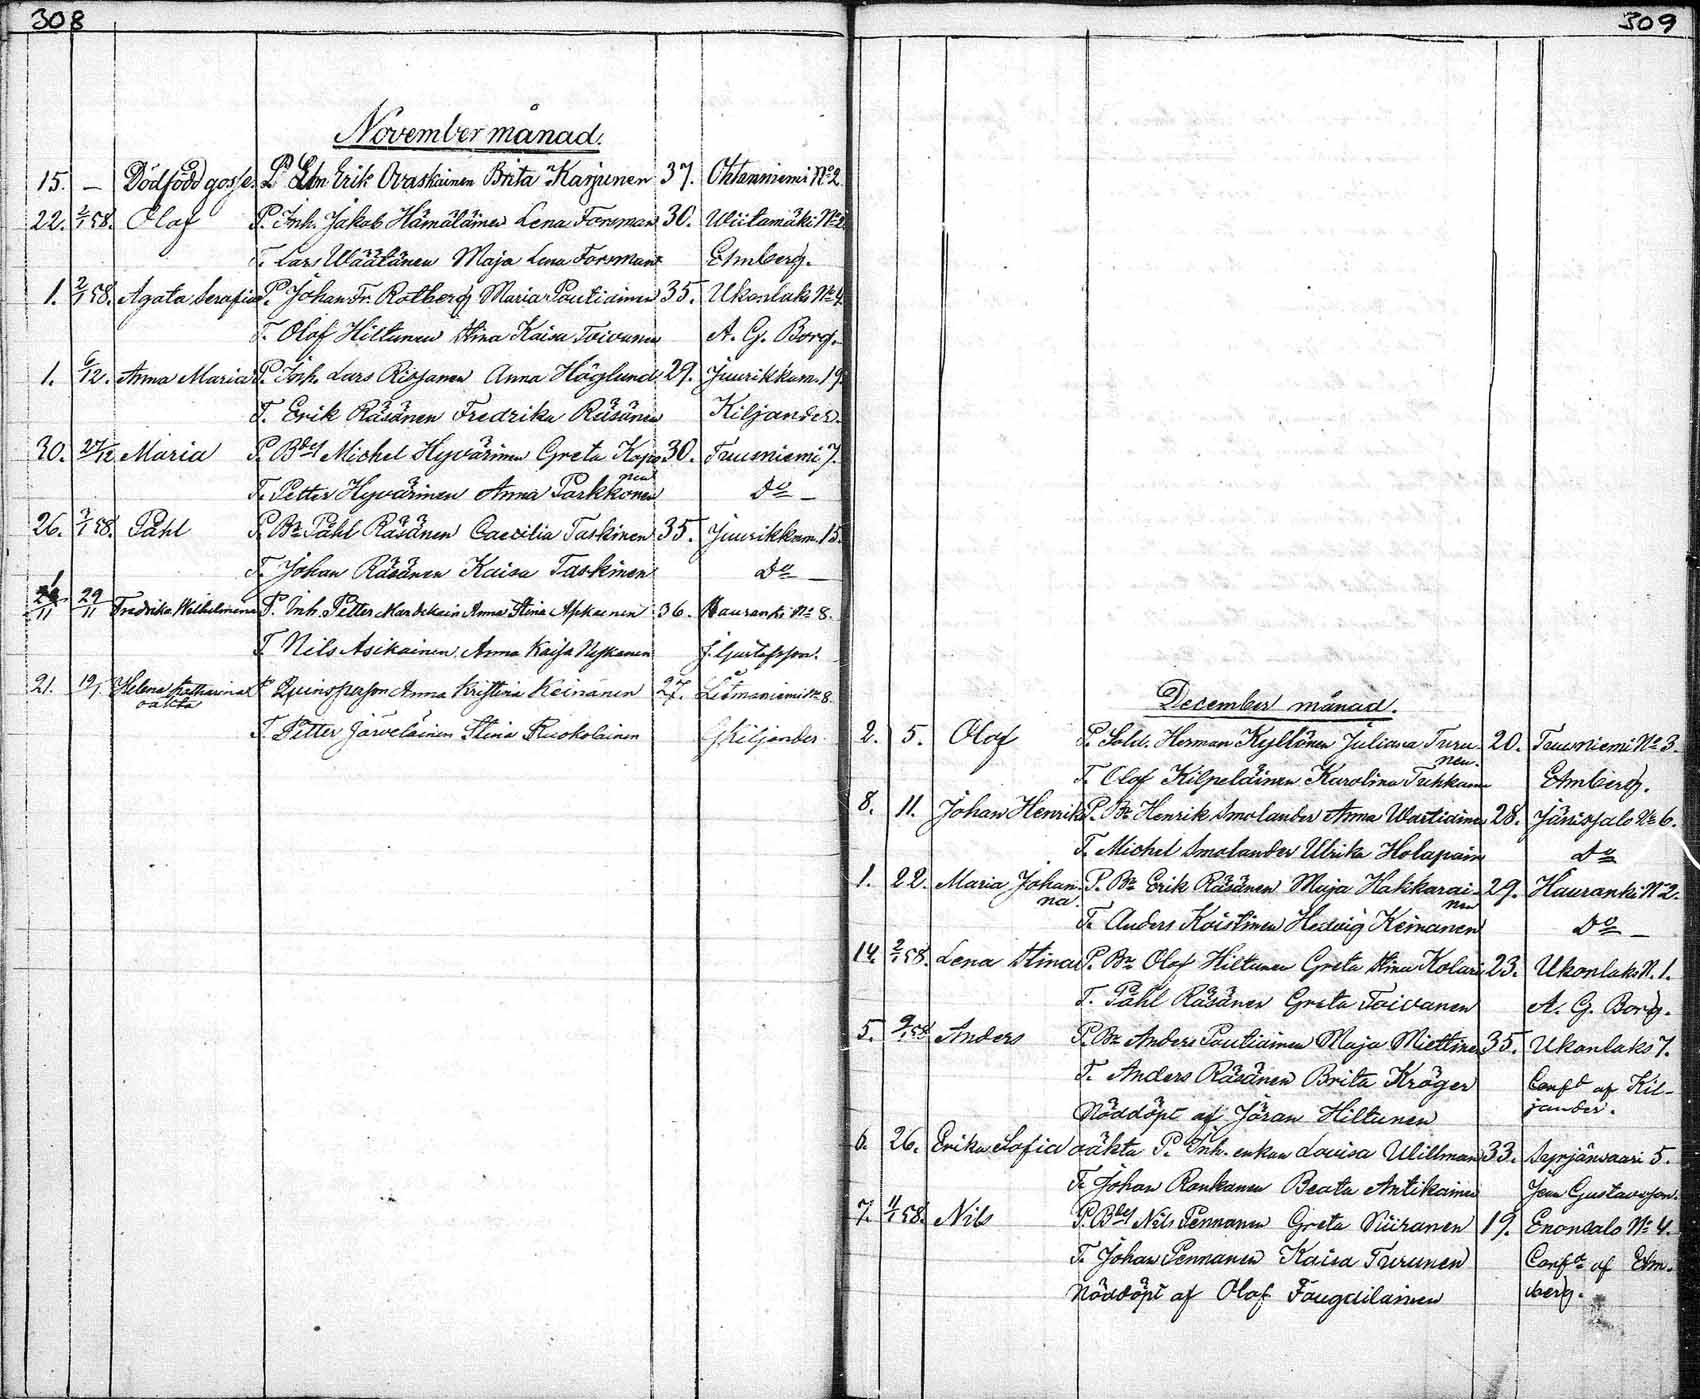 308
November månad.
15. — Dödfödd gosse. P. Erik Ovaskainen Brita Karjunen 37. Ohtanniemi No 2.
22. 2/1 58. Olof P. Inh. Jakob Hämäläinen Lena Forsman 30. Wiitamäki No 2.
T. Lars Wäätänen Maja Lena Forsman Ehnberg.
1. 2/1 58. Agata Serafia P. Johan Fr. Rotberg Maria Pautiainen 35. Ukonlaks No 4.
T. Olof Hiltunen Stina Kaisa Toivanen A. G. Borg.
1. 6/12. Anna Maria P. Inh. Lars Rissanen Anna Höglund 29. Juurikkam. 19.
T. Erik Räsänen Fredrika Räsänen Kiljander.
30. 27/12 Maria P. Bdes Michel Hyvärinen Greta Kopo- 30. Tuusniemi 7.
nen
T. Petter Hyvärinen Anna Parkkonen Do —
26. 3/1 58. Påhl P. Bn Påhl Räsänen Caecilia Taskinen 35. Juurikkam. 15.
T. Johan Räsänen Kaisa Taskinen Do —
/11 29/11 Fredrika Wilhelmina P. Inh. Petter Anna Stina 36. Hauranki No 8.
T. Nils Asikainen Anna Kaisa Nykanen J. Gustafsson.
21. 19/1 Helena Katharina P. Qvinsperson Anna Kristina Keinänen 27. No 8.
oäkta
T. Petter Järveläinen Stina Ruokolainen Kiljander
309
December månad.
2. 5. Olof P. Sold. Herman Kyllönen Juliana Turu- 20. Tuusniemi No 3.
nen.
T. Olof Kilpeläinen Karolina Tuhkanen Ehnberg.
8. 11. Johan Henrik P. Bn Henrik Smolander Anna Wartiainen 28. Jänissalo No 6.
T. Michel Smolander Ulrika Holapain Do
1. 22. Maria Johan- P. Bn Erik Räsänen Maja Hakkarai- 29. Hauranki No 2.
na. nen
T. Anders Koistinen Hedvig Keinanen Do —
14. 2/1 58. Lena Stina P. Bn Olof Hiltunen Greta Stina Kolari 23. Ukonlaks N. 1.
T. Påhl Räsänen Greta Toivanen A. G. Borg.
5. 9/1 58 Anders P. Bn Anders Pautiainen Maja Miettinen 35. Ukonlaks 7.
T. Anders Räsänen Brita Kröger Confd af Kil-
Nöddöpt af Jöran Hiltunen jander.
6. 26. Erika Sofia oäkta P. Inh. enkan Lovisa Willman 33. Syrjänvaari 5.
T. Johan Ronkanen Beata Antikainen Gustavsson.
7. 11/1 58. Nils P. Bdes Nils Pennanen Greta Niiranen 19. Enonsalo No 4.
T. Johan Pennanen Kaisa Turunen Confd af Ehn-
Nöddöpt af Olof berg.